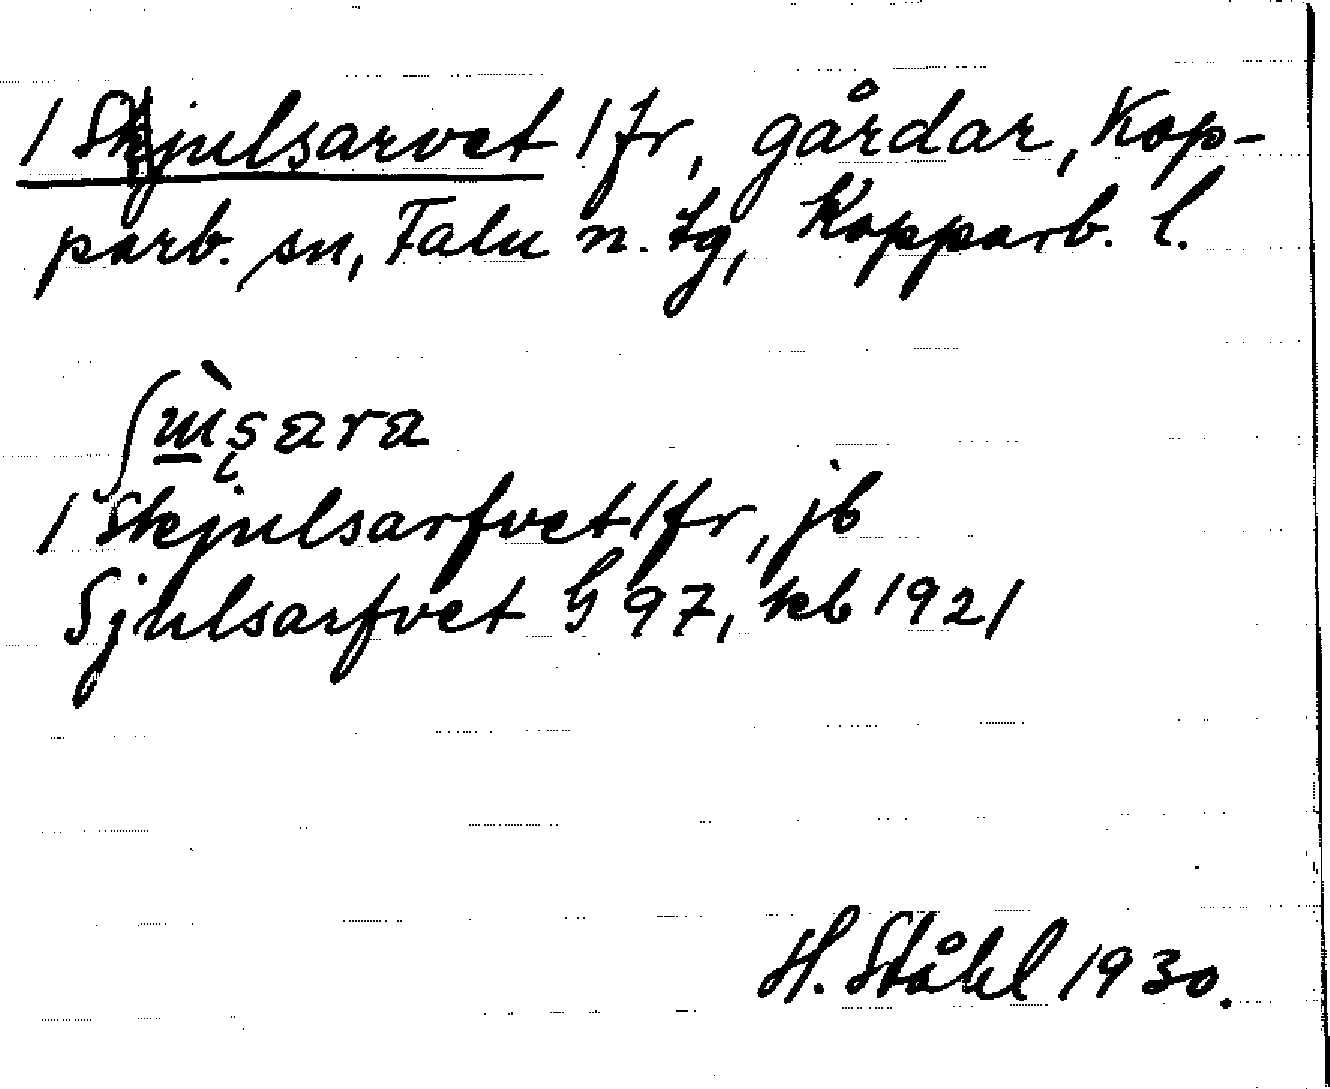 / Sjulsarvet / fr, gårdar, Kop-
parb. sn, Falu n. tg, Kopparb. l.
/ Skjulsarfvet / fr, jb
Sjulsarfvet G 97, kb 1921
H. Ståhl 1930.